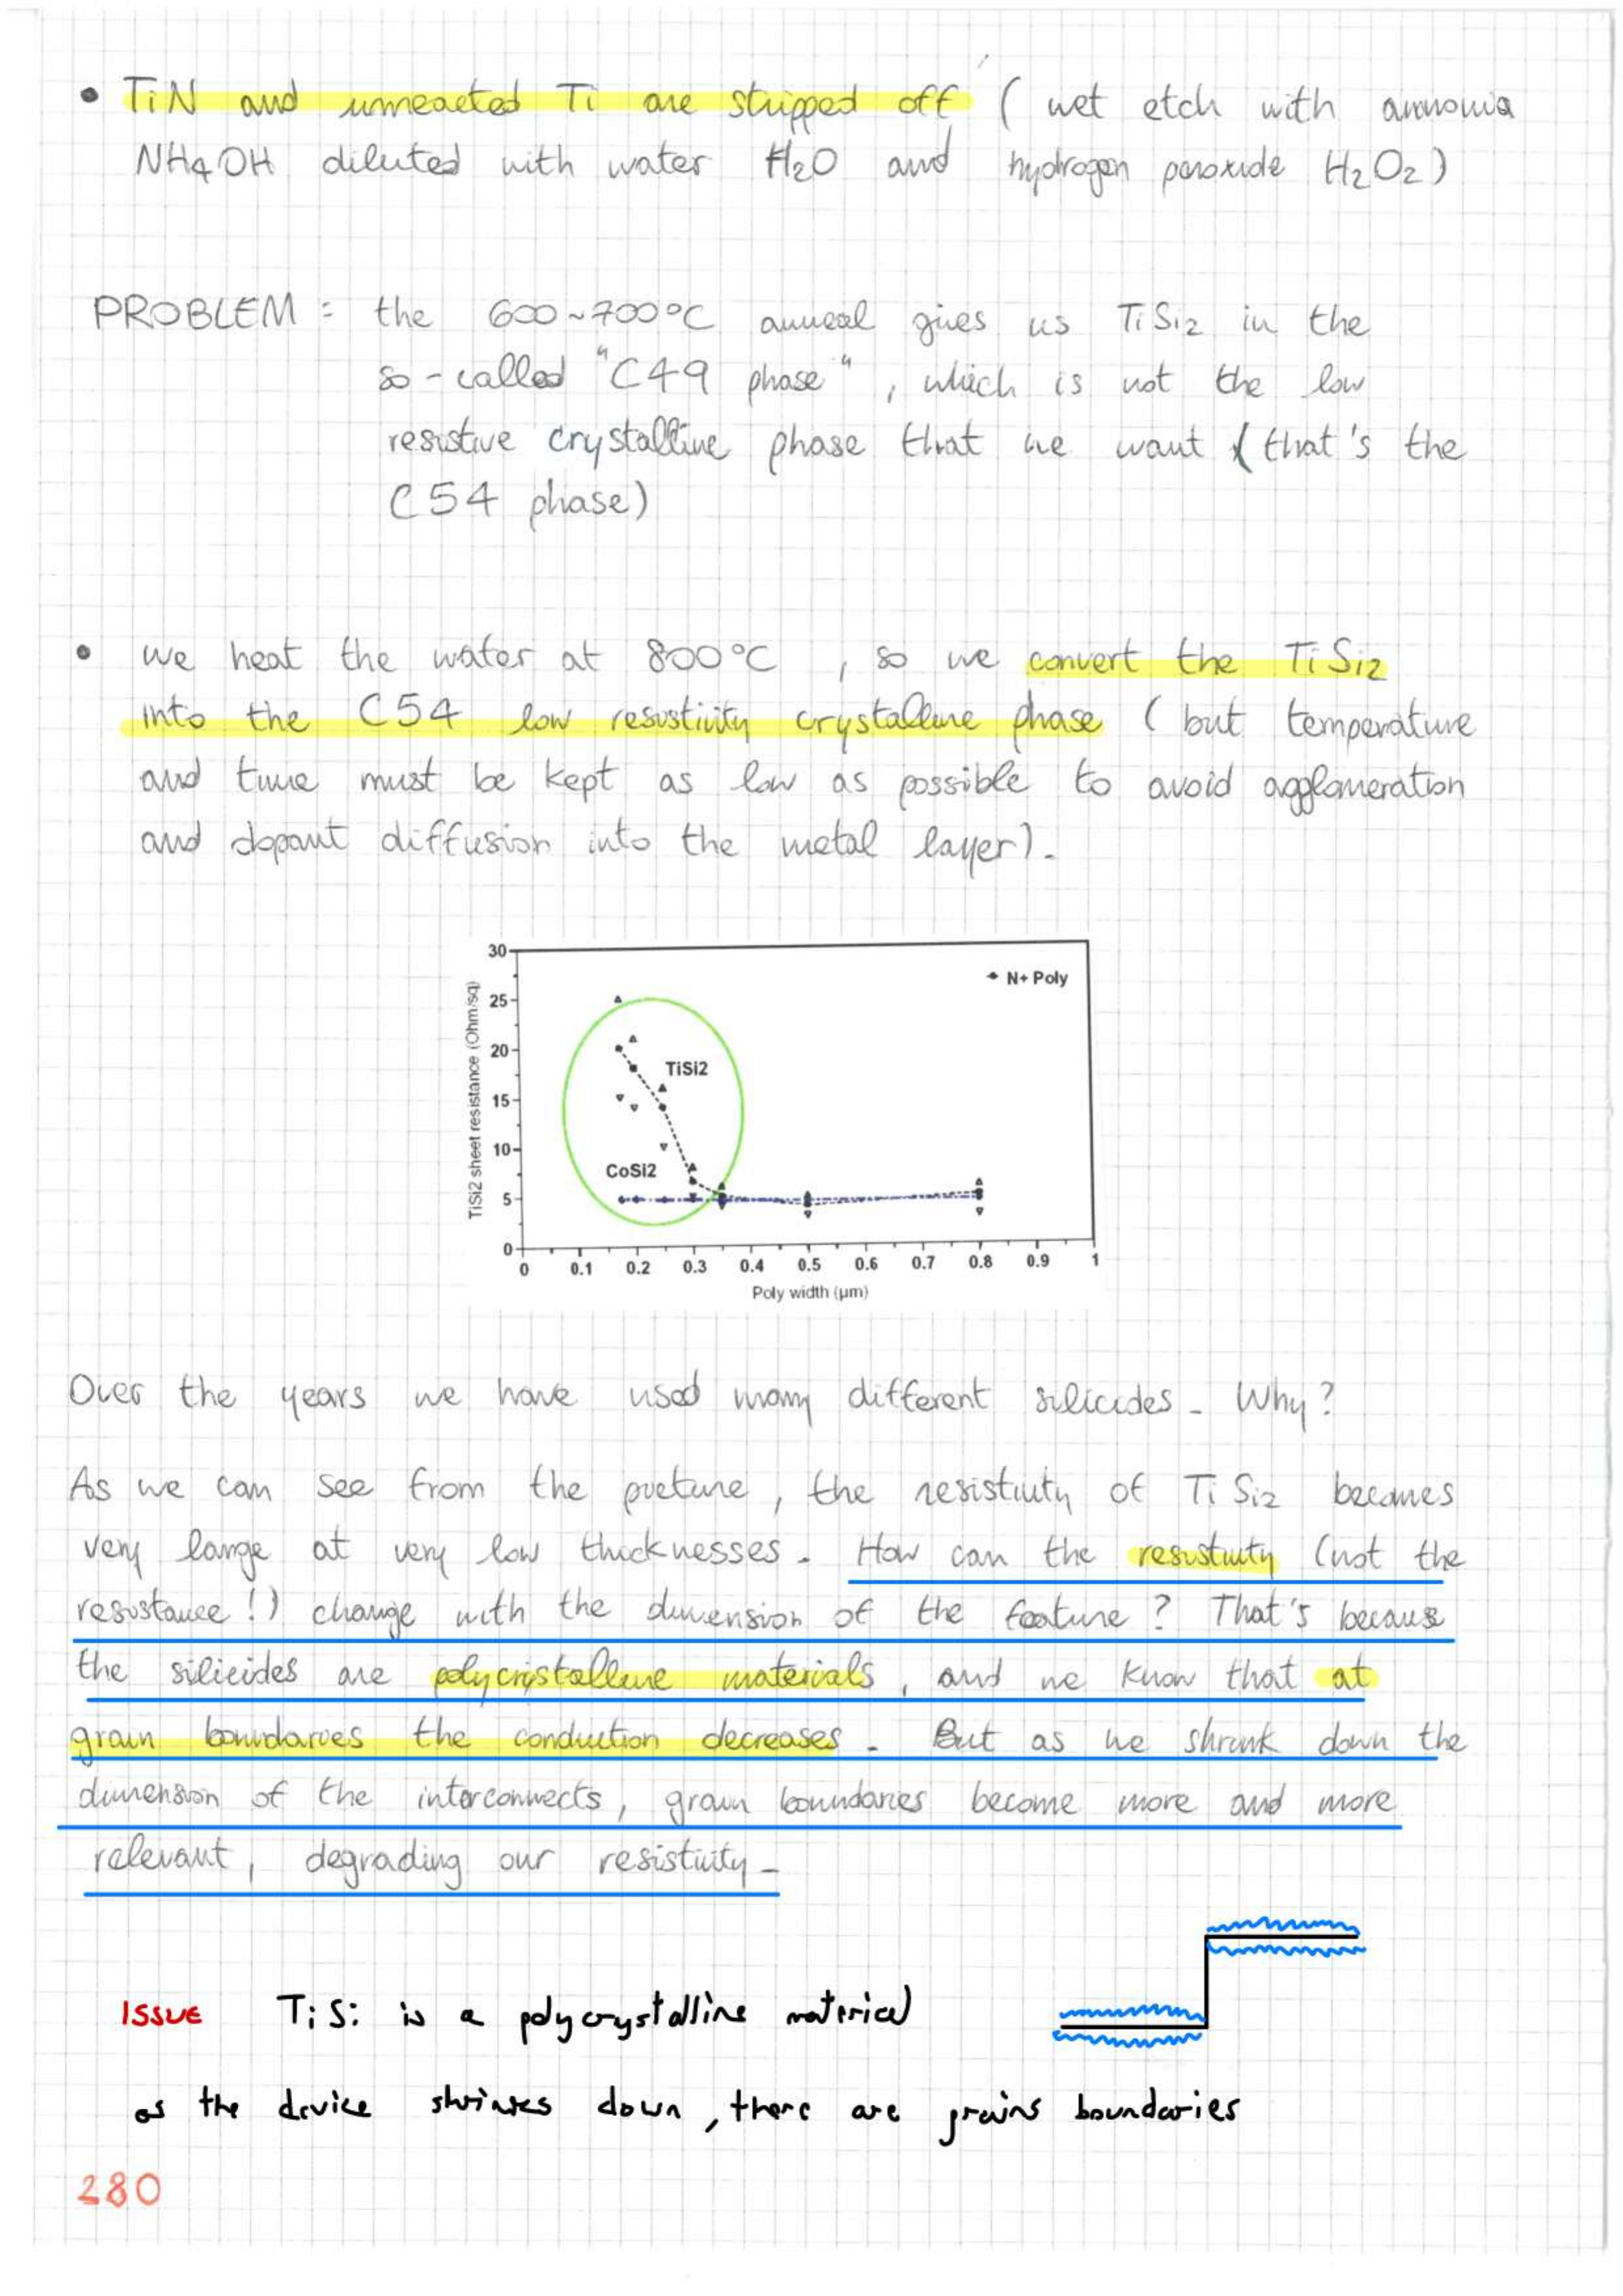 • TiN and unreacted Ti are stripped off ( wet etch with ammonia
NH4OH diluted with water H2O and hydrogen peroxide H2O2)
PROBLEM : the 600~700°C anneal gives us TiSi2 in the
so-called "C49 phase", which is not the low
resistive crystalline phase that we want ( that's the
C54 phase)
• we heat the water at 800°C , so we convert the TiSi2
into the C54 low resistivity crystalline phase ( but temperature
and time must be kept as low as possible to avoid agglomeration
and dopant diffusion into the metal layer).
30
N+ Poly
25
20
TiSi2
15
10
CoSi2
5
0
TiSi2 sheet resistance (Ohm/sq)
0 0.1 0.2 0.3 0.4 0.5 0.6 0.7 0.8 0.9 1
Poly width (µm)
Over the years we have used many different silicides. Why?
As we can see from the picture, the resistivity of TiSi2 becomes
very large at very low thicknesses. How can the resistivity (not the
resistance!) change with the dimension of the feature? That's because
the silicides are polycristalline materials, and we know that at
grain boundaries the conduction decreases. But as we shrink down the
dimension of the interconnects, grain boundaries become more and more
relevant, degrading our resistivity.
ISSUE TiSi is a polycrystalline material
as the device shrinks down, there are grains boundaries
280